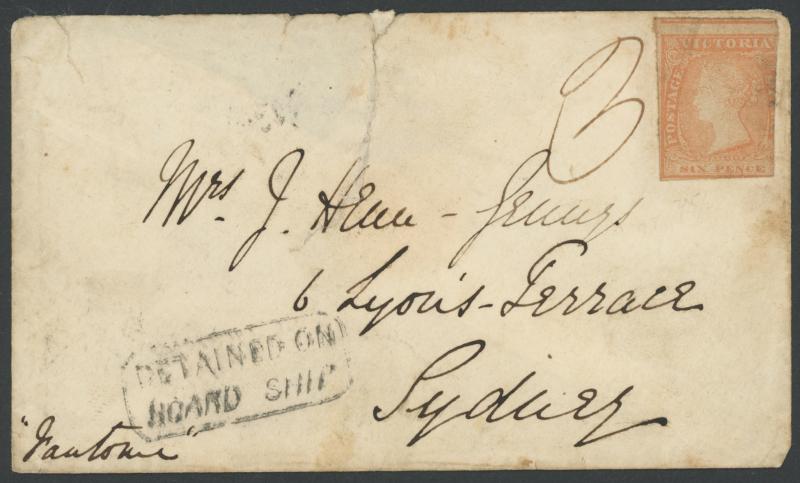 VICTORIA
POSTAGE
SIX PENCE
3
Mrs. J. Henn - Jennings
6 Lyons-Terrace
Sydney
DETAINED ON
BOARD SHIP
"Fantome"